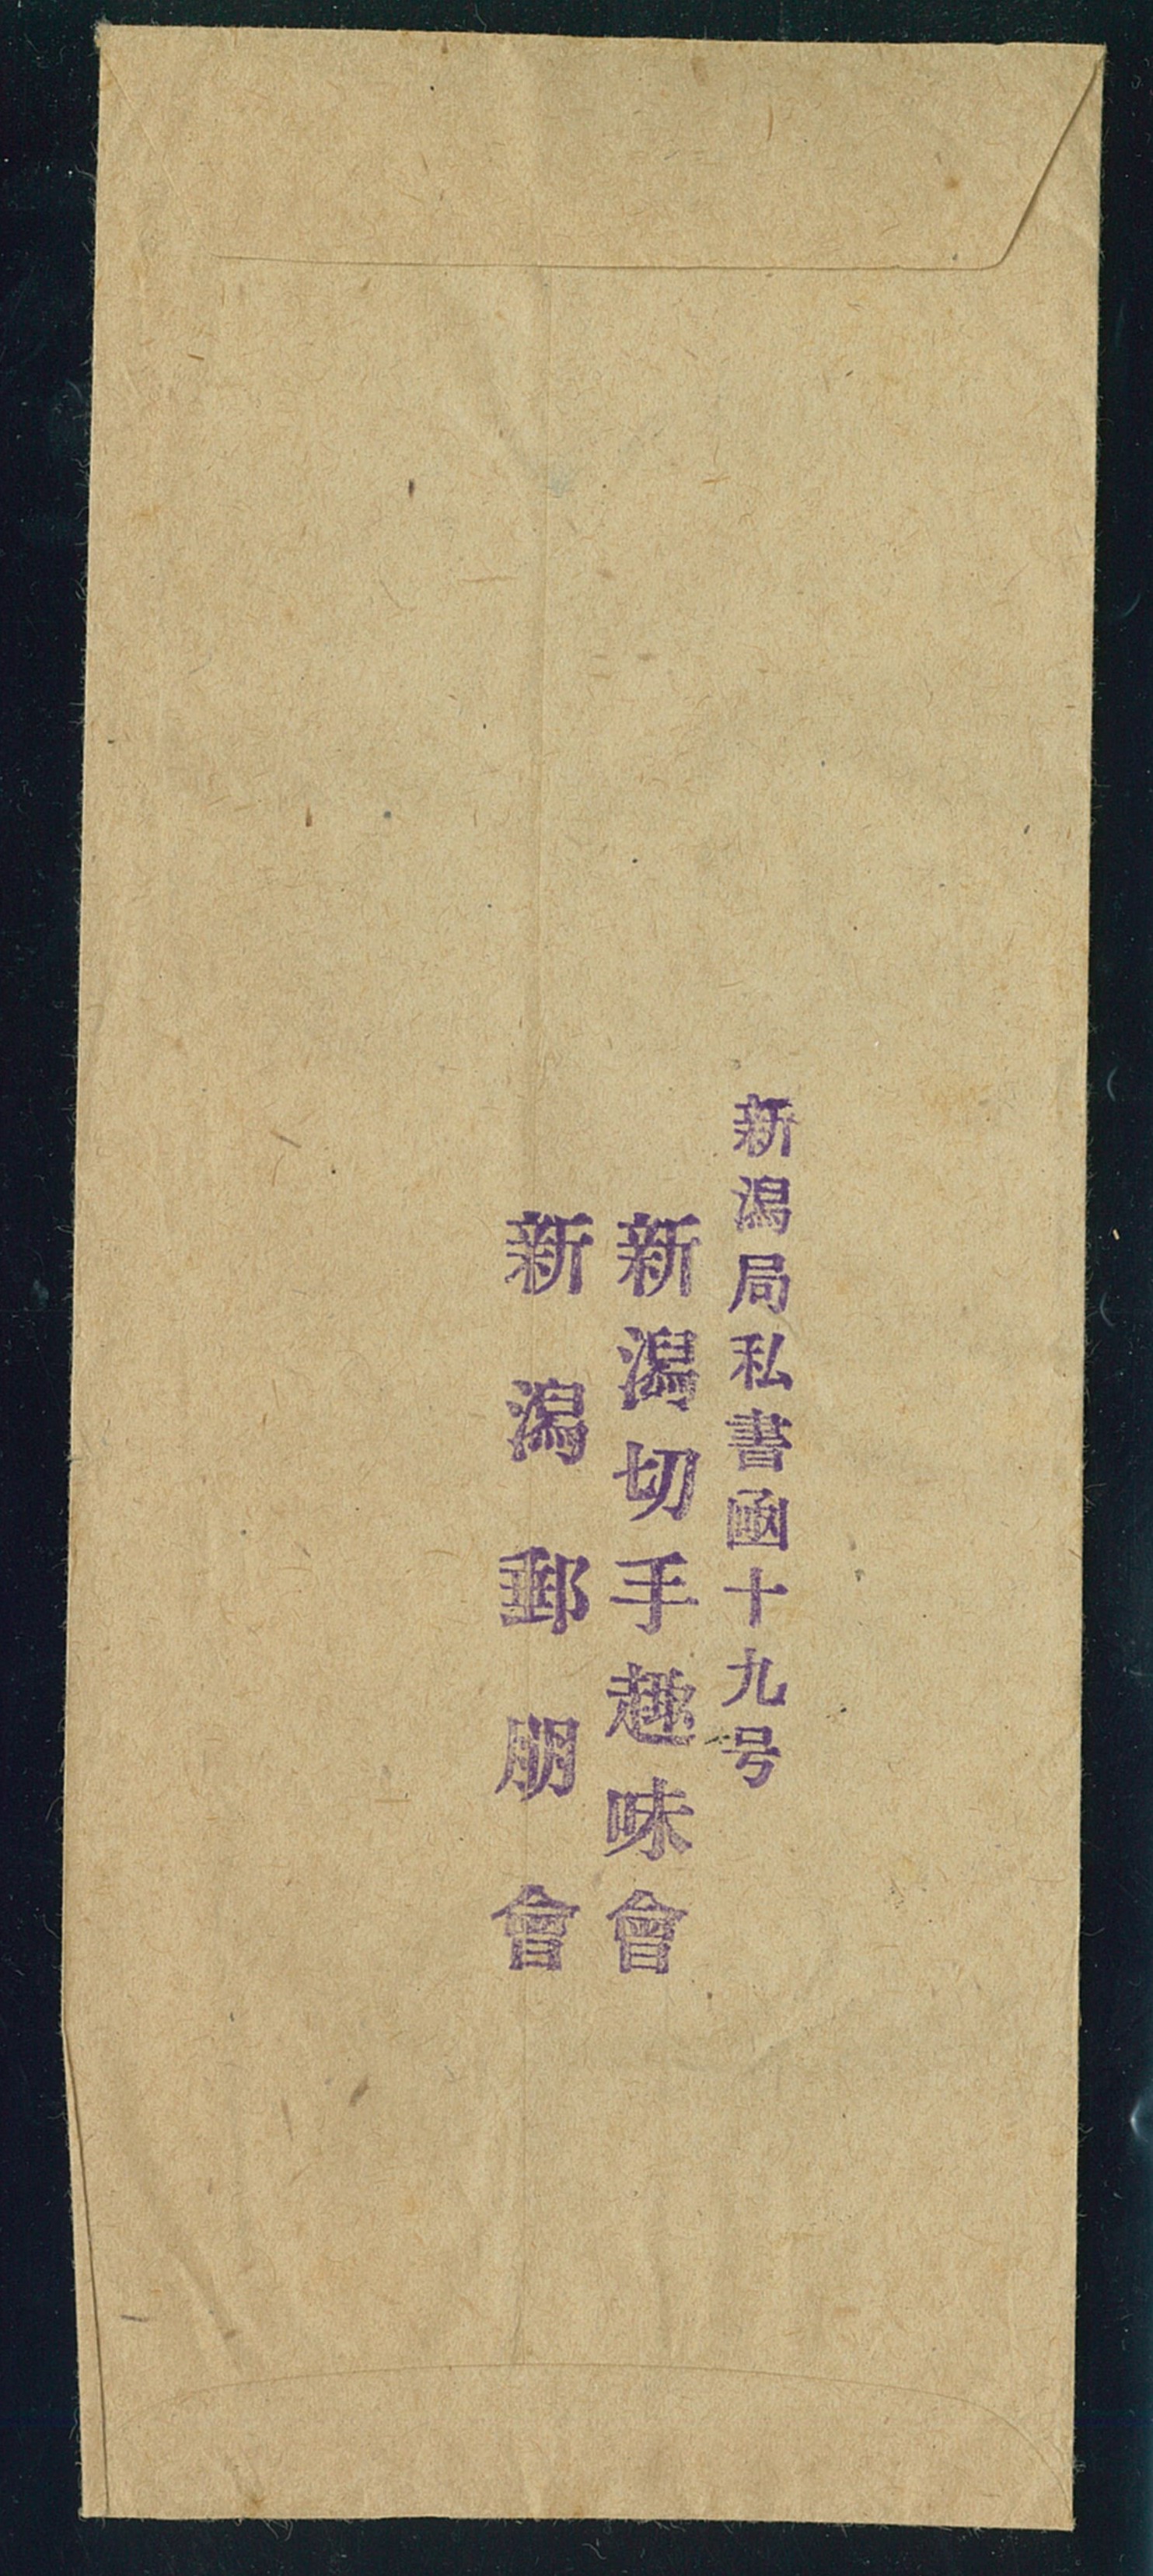 新潟局私書函十九号
新潟切手趣味會
新潟郵朋會